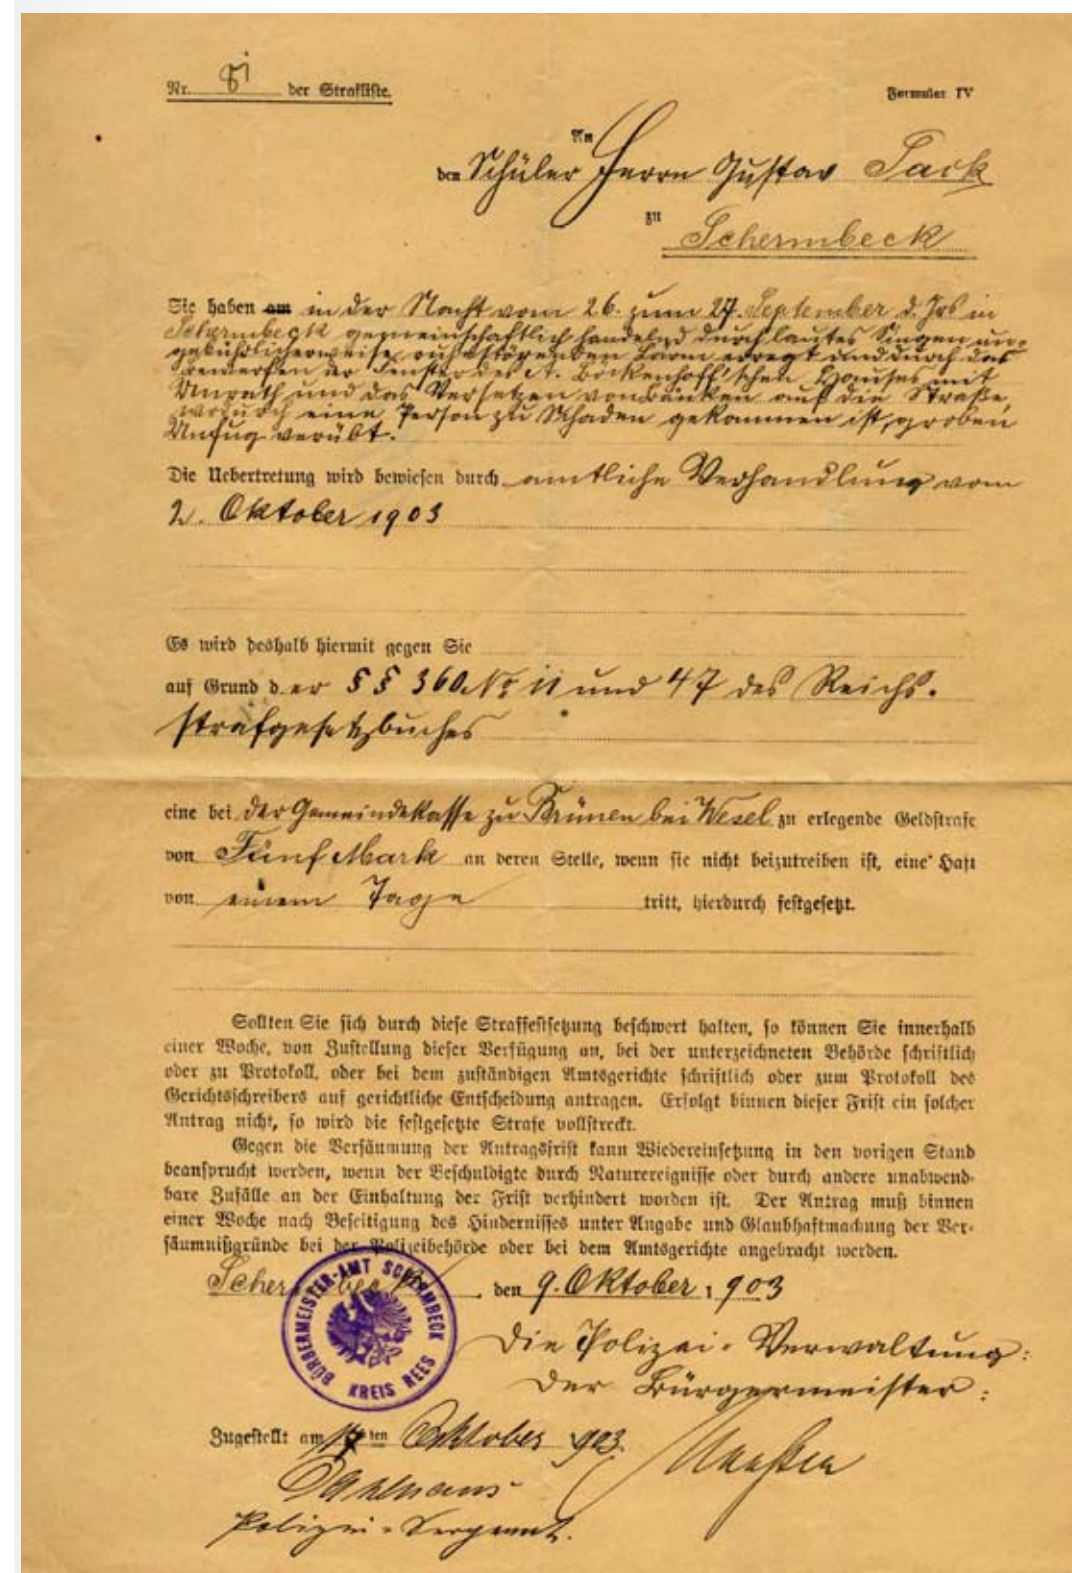 Nr. 81 der Strafliste.
Formular IV
An
den Schüler Herrn Gustav Sack
zu
Schermbeck
Sie haben am in der Nacht vom 26. zum 27. September d. Jrs in
Schermbeck gemeinschaftlich handelnd durch lautes Singen un-
gebührlicherweise ruhestörenden Lärm erregt und durch das
Bewerfen der Fenster des A. Böckenhoff'schen Hauses mit
Unrath und das Versetzen von Bänken auf die Straße,
wodurch eine Person zu Schaden gekommen ist, groben
Unfug verübt.
Die Uebertretung wird bewiesen durch amtliche Verhandlung vom
2. Oktober 1903
Es wird deshalb hiermit gegen Sie
auf Grund d.er §§ 360 No 11 und 47 des Reichs-
strafgesetzbuches
eine bei der Gemeindekasse zu Brünen bei Wesel zu erlegende Geldstrafe
von Fünf Mark an deren Stelle, wenn sie nicht beizutreiben ist, eine Haft
von einem Tage tritt, hierdurch festgesetzt.
Sollten Sie sich durch diese Straffestsetzung beschwert halten, so können Sie innerhalb
einer Woche, von Zustellung dieser Verfügung an, bei der unterzeichneten Behörde schriftlich
oder zu Protokoll, oder bei dem zuständigen Amtsgerichte schriftlich oder zum Protokoll des
Gerichtsschreibers auf gerichtliche Entscheidung antragen. Erfolgt binnen dieser Frist ein solcher
Antrag nicht, so wird die festgesetzte Strafe vollstreckt.
Gegen die Versäumung der Antragsfrist kann Wiedereinsetzung in den vorigen Stand
beansprucht werden, wenn der Beschuldigte durch Naturereignisse oder durch andere unabwend-
bare Zufälle an der Einhaltung der Frist verhindert worden ist. Der Antrag muß binnen
einer Woche nach Beseitigung des Hindernisses unter Angabe und Glaubhaftmachung der Ver-
säumnißgründe bei der Polizeibehörde oder bei dem Amtsgerichte angebracht werden.
Schermbeck, den 9. Oktober 1903
BÜRGERMEISTER-AMT SCHERMBECK
KREIS REES
Die Polizei-Verwaltung:
Der Bürgermeister:
Zugestellt am ten Oktober 1903.
Dahlmans
Polizei-Sergeant.